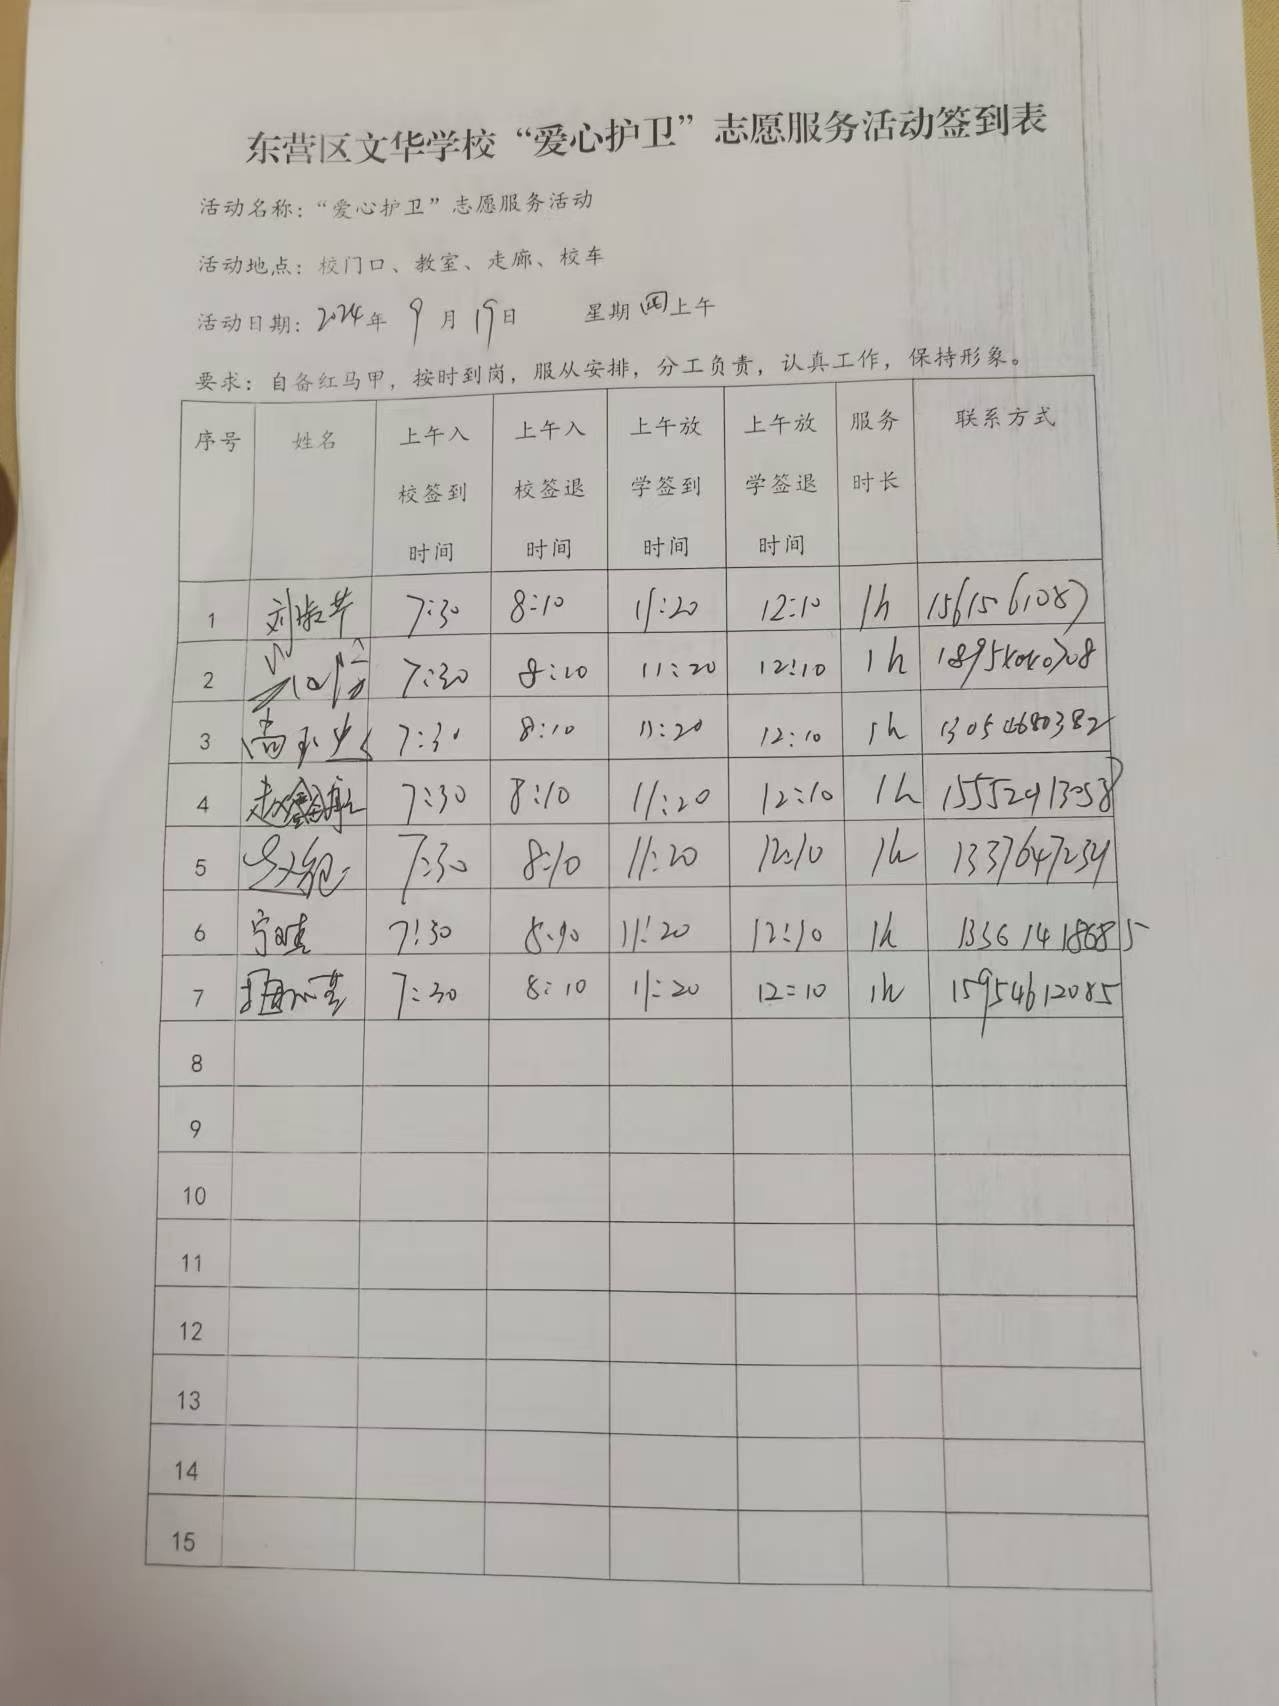 东营区文华学校“爱心护卫”志愿服务活动签到表
活动名称：“爱心护卫”志愿服务活动
活动地点：校门口、教室、走廊、校车
活动日期：2024年 9月 19日 星期四上午
要求：自备红马甲，按时到岗，服从安排，分工负责，认真工作，保持形象。
序号 姓名 上午入校签到时间 上午入校签退时间 上午放学签到时间 上午放学签退时间 服务时长 联系方式
1 刘淑芹 7:30 8:10 11:20 12:10 1h 15615661087
2 7:30 8:10 11:20 12:10 1h
3 7:30 8:10 11:20 12:10 1h 13054680382
4 赵鑫航 7:30 8:10 11:20 12:10 1h 15552413058
5 7:30 8:10 11:20 12:10 1h 13376472391
6 宁 7:30 8:10 11:20 12:10 1h 13561418685
7 7:30 8:10 11:20 12:10 1h 15954612085
8
9
10
11
12
13
14
15